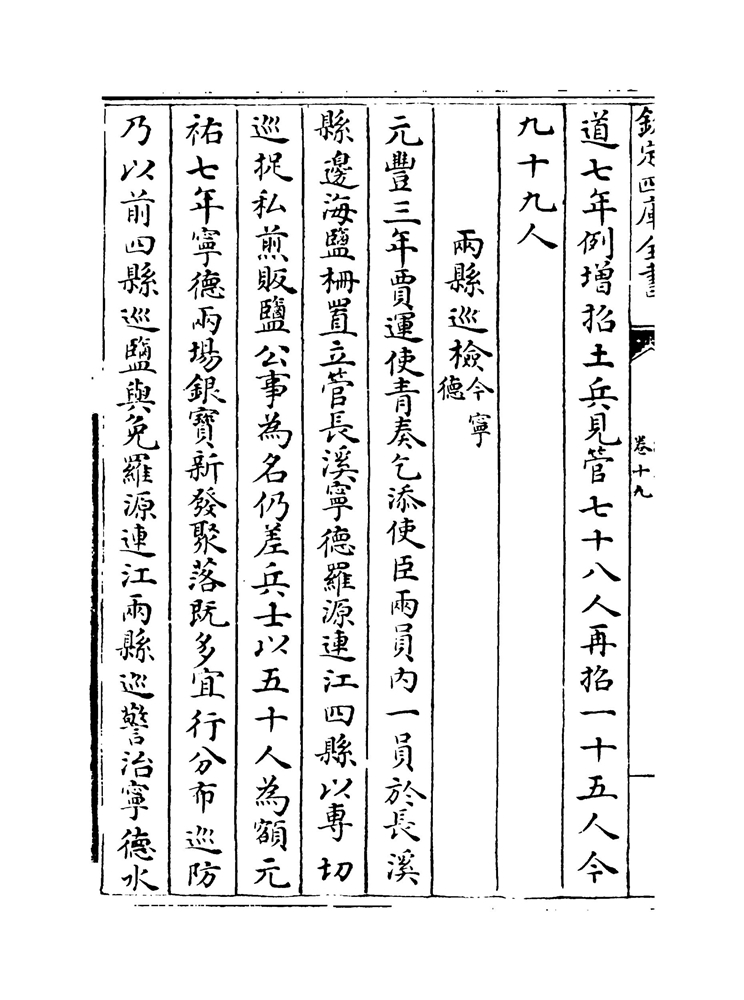 欽定四庫全書
卷十九
道七年例增招土兵見管七十八人再招一十五人今
九十九人
兩縣巡檢今寧德
元豐三年賈運使青奏乞添使臣兩員内一員於長溪
縣邊海鹽柵置立管長溪寧德羅源連江四縣以專切
巡捉私煎販鹽公事為名仍差兵士以五十人為額元
祐七年寧德兩場銀寶新發聚落既多宜行分布巡防
乃以前四縣巡鹽與免羅源連江兩縣巡警治寧德水